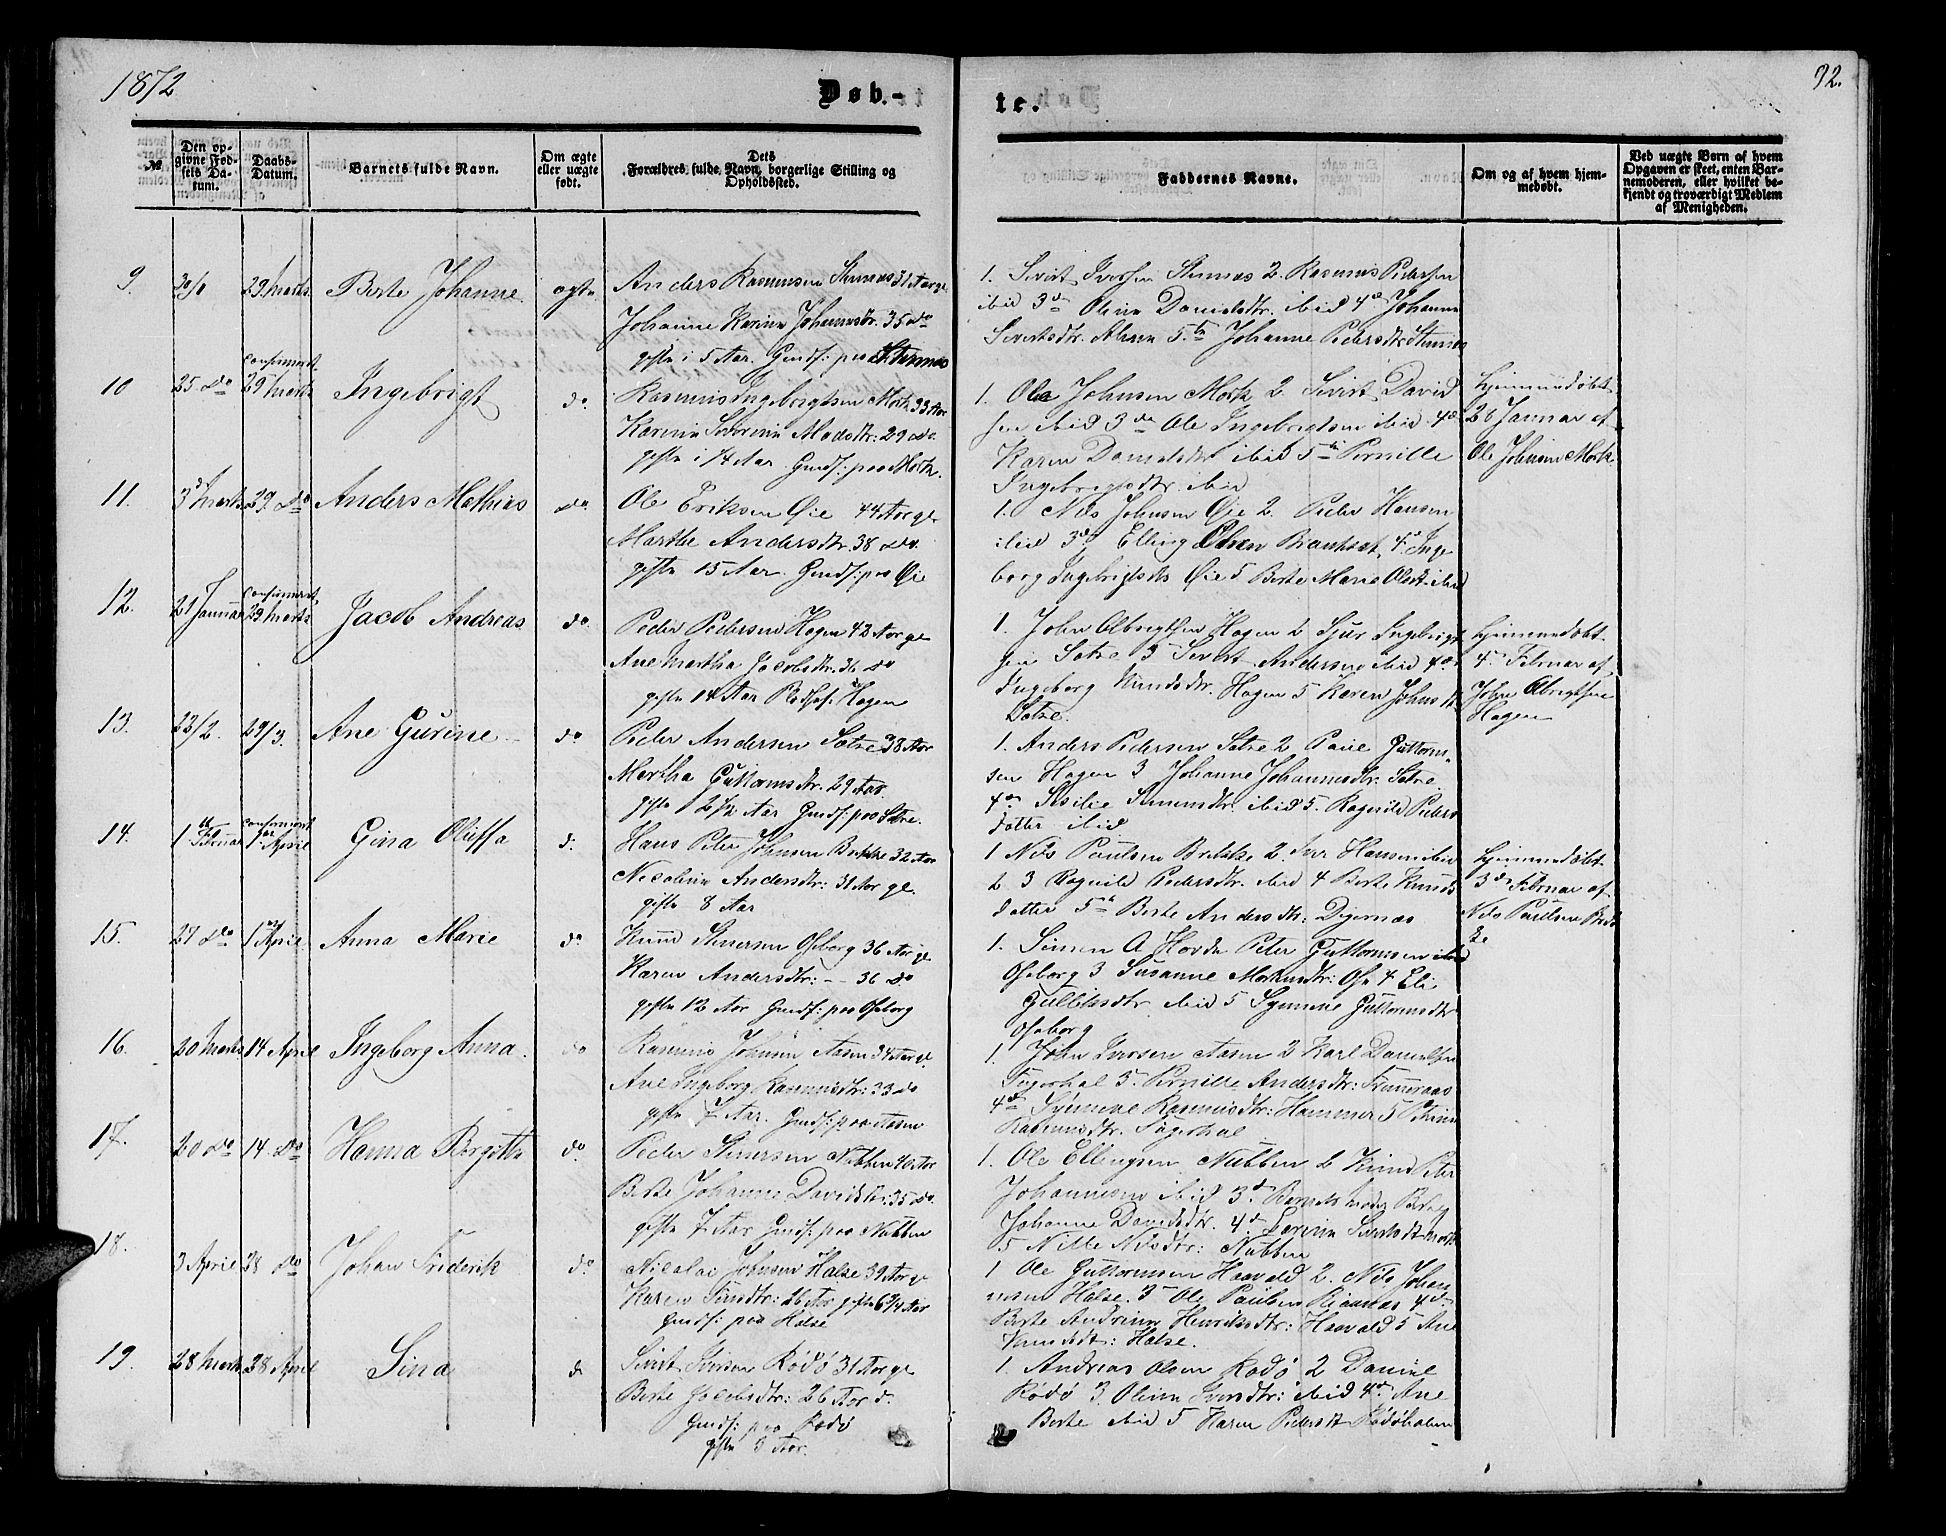 1872
Døb-
te.
92.
№
Den opgivne Fødsels Datum.
Daabs-Datum.
Barnets fulde Navn.
Om ægte eller uægte født.
Dets Forældres fulde Navn, borgerlige Stilling og Opholdssted.
Faddernes Navne.
Om og af hvem hjemmedøbt.
Ved uægte Børn af hvem Opgaven er skeet, enten Barnemoderen, eller hvilket bekjendt og troværdigt Medlem af Menigheden.
9.
29 Marts
Berte Johanne
ægte
Anders Rasmusen Stennes 31 Aar gl
Johanne Karine Johannsdtr. 35 do
gifte i 5 Aar. Gmdf: paa Stennes
1. Sivert Iversen Stennes 2. Rasmus Pedersen
ibid 3de Oline Danielsdtr. ibid 4de Johanne
Sivertsdtr. 5te Johanne Pedersdtr Stennes
10
25 do
confirmeret
29 Marts
Ingebrigt
do
Rasmus Ingebrigtsen Mork 33 Aar
Karine Severine Madsdtr: 29 do
gifte i 14 Aar Gmdf: paa Mork.
1. Ole Johnsen Mork 2. Sivert David
sen ibid 3de Ole Ingebrigtsen ibid 4de
Karen Danielsdtr ibid 5te Pernille
Ingebrigtsdtr. ibid
hjemmedøbt
28 Januar af
Ole Johnsen Mork
11.
3d Marts
29 do
Anders Mathias
do
Ole Eriksen Øie 44 Aar gl
Marthe Andersdtr. 38 do
gifte 15 Aar. Gmdf: paa Øie
1. Nils Johnsen Øie 2. Peder Hansen
ibid 3de Elling Olsen 4de Inge
borg Ingebrigtsdtr Øie 5 Berte Marie Olsdt ibid
12.
21 Januar
confirmeret
29 Marts
Jacob Andreas
do
Peder Pedersen Hagen 42 Aar gl
Ane Martha Jacobsdtr. 36 do
gifte 14 Aar Hagen
1. John Olbrigtsen Hagen 2 Sjur Ingebrigt
sen Sætre 3 Sivert Andersen ibid 4de
Ingeborg Knudsdtr. Hagen 5 Karen Johns
Sætre.
hjemmedøbt
4de Februar af
John Olbrigtsen
Hagen
13.
23/2.
29/3.
Ane Gurine
do
Peder Andersen Sætre 38 Aar
Martha Guttormsdtr. 29 Aar
gifte 2 1/2 Aar Gmdf: paa Sætre.
1. Anders Pedersen Sætre 2 Paul Guttorm-
sen Hagen 3 Johanne Johannesdtr. Sætre
4de ibid 5. Ragnild Peders
datter ibid
14.
1te Februar
confirmeret
1 April
Gina Oluffa
d.
Hans Peter Johnsen Brekke 32 Aar
Nicoline Andersdtr: 31 Aar gl.
gifte 8 Aar
1 Nils Paulsen Brekke 2. Iver Hansen ibid
3 Ragnild Pedersdtr. ibid 4 Berte Knuds
datter 5te Berte Andersdtr: Digernes
hjemmedøbt
3de Februar af
Nils Paulsen Brek
ke
15.
27 do
1 April
Anna Marie
do
Knud Stenersen Oseborg 36 Aar gl
Karen Andersdtr: -- 36 do
gifte 12 Aar Gmdf: paa Oseborg
1. Simen A Hovde Peter Guttormsen
Oseborg 3 Susanne 4 Eli
ibid 5 Synneve Guttormsdtr
Oseborg
16.
20 Marts
14 April
Ingeborg Anna.
do
Rasmus Johnsen Aasen 34 Aar gl.
Ane Ingeborg Rasmusdtr: 33 do
gifte 7 Aar. Gmdf: paa Aasen
1. John Iversen Aasen 2 Karl Danielsen
3. Pernille Andersdtr:
4de Synneve Rasmusdtr: Hammer 5
Rasmusdtr.
17.
20 do
14 do
Hanna Bergitte
do
Peder Stenersen Nubben 40 Aar
Berte Johanne Davidsdtr. 35 do
gifte 7 Aar Gmdf: paa Nubben
1. Ole Ellingsen Nubben 2 Knud Peter
Johannesen ibid 3de Barnets Moder Berte
Johanne Davidsdtr. 4de Severine Sivertsdt Mork
5 Nille Nilsdtr: Nubben
18.
3 April
28 do
Johan Friderik
do
Nicolai Johnsen Halse 39 Aar gl
Karen 26 Aar gifte 6 3/4 Aar
Gmdf: paa Halse
1 Ole Guttormsen Haavald 2. Nils Johan
nesen Halse. 3 Ole Paulsen 4de
Berte Andrine Henriksdtr: Haavald 5 Ane
Halse.
19.
28 Marts
28 April
Sina
d
Sivert Iversen Rødø 31 Aar gl
Berte Jacobsdtr: 26 Aar d.
Gmdf: paa Rødø
gifte 3 Aar.
1. Andreas Olsen Rødø 2 Daniel
Rødø 3 Oline Iversdtr: ibid 4de Ane
Berte ibid 5 Karen Pedersdt Rødøholm